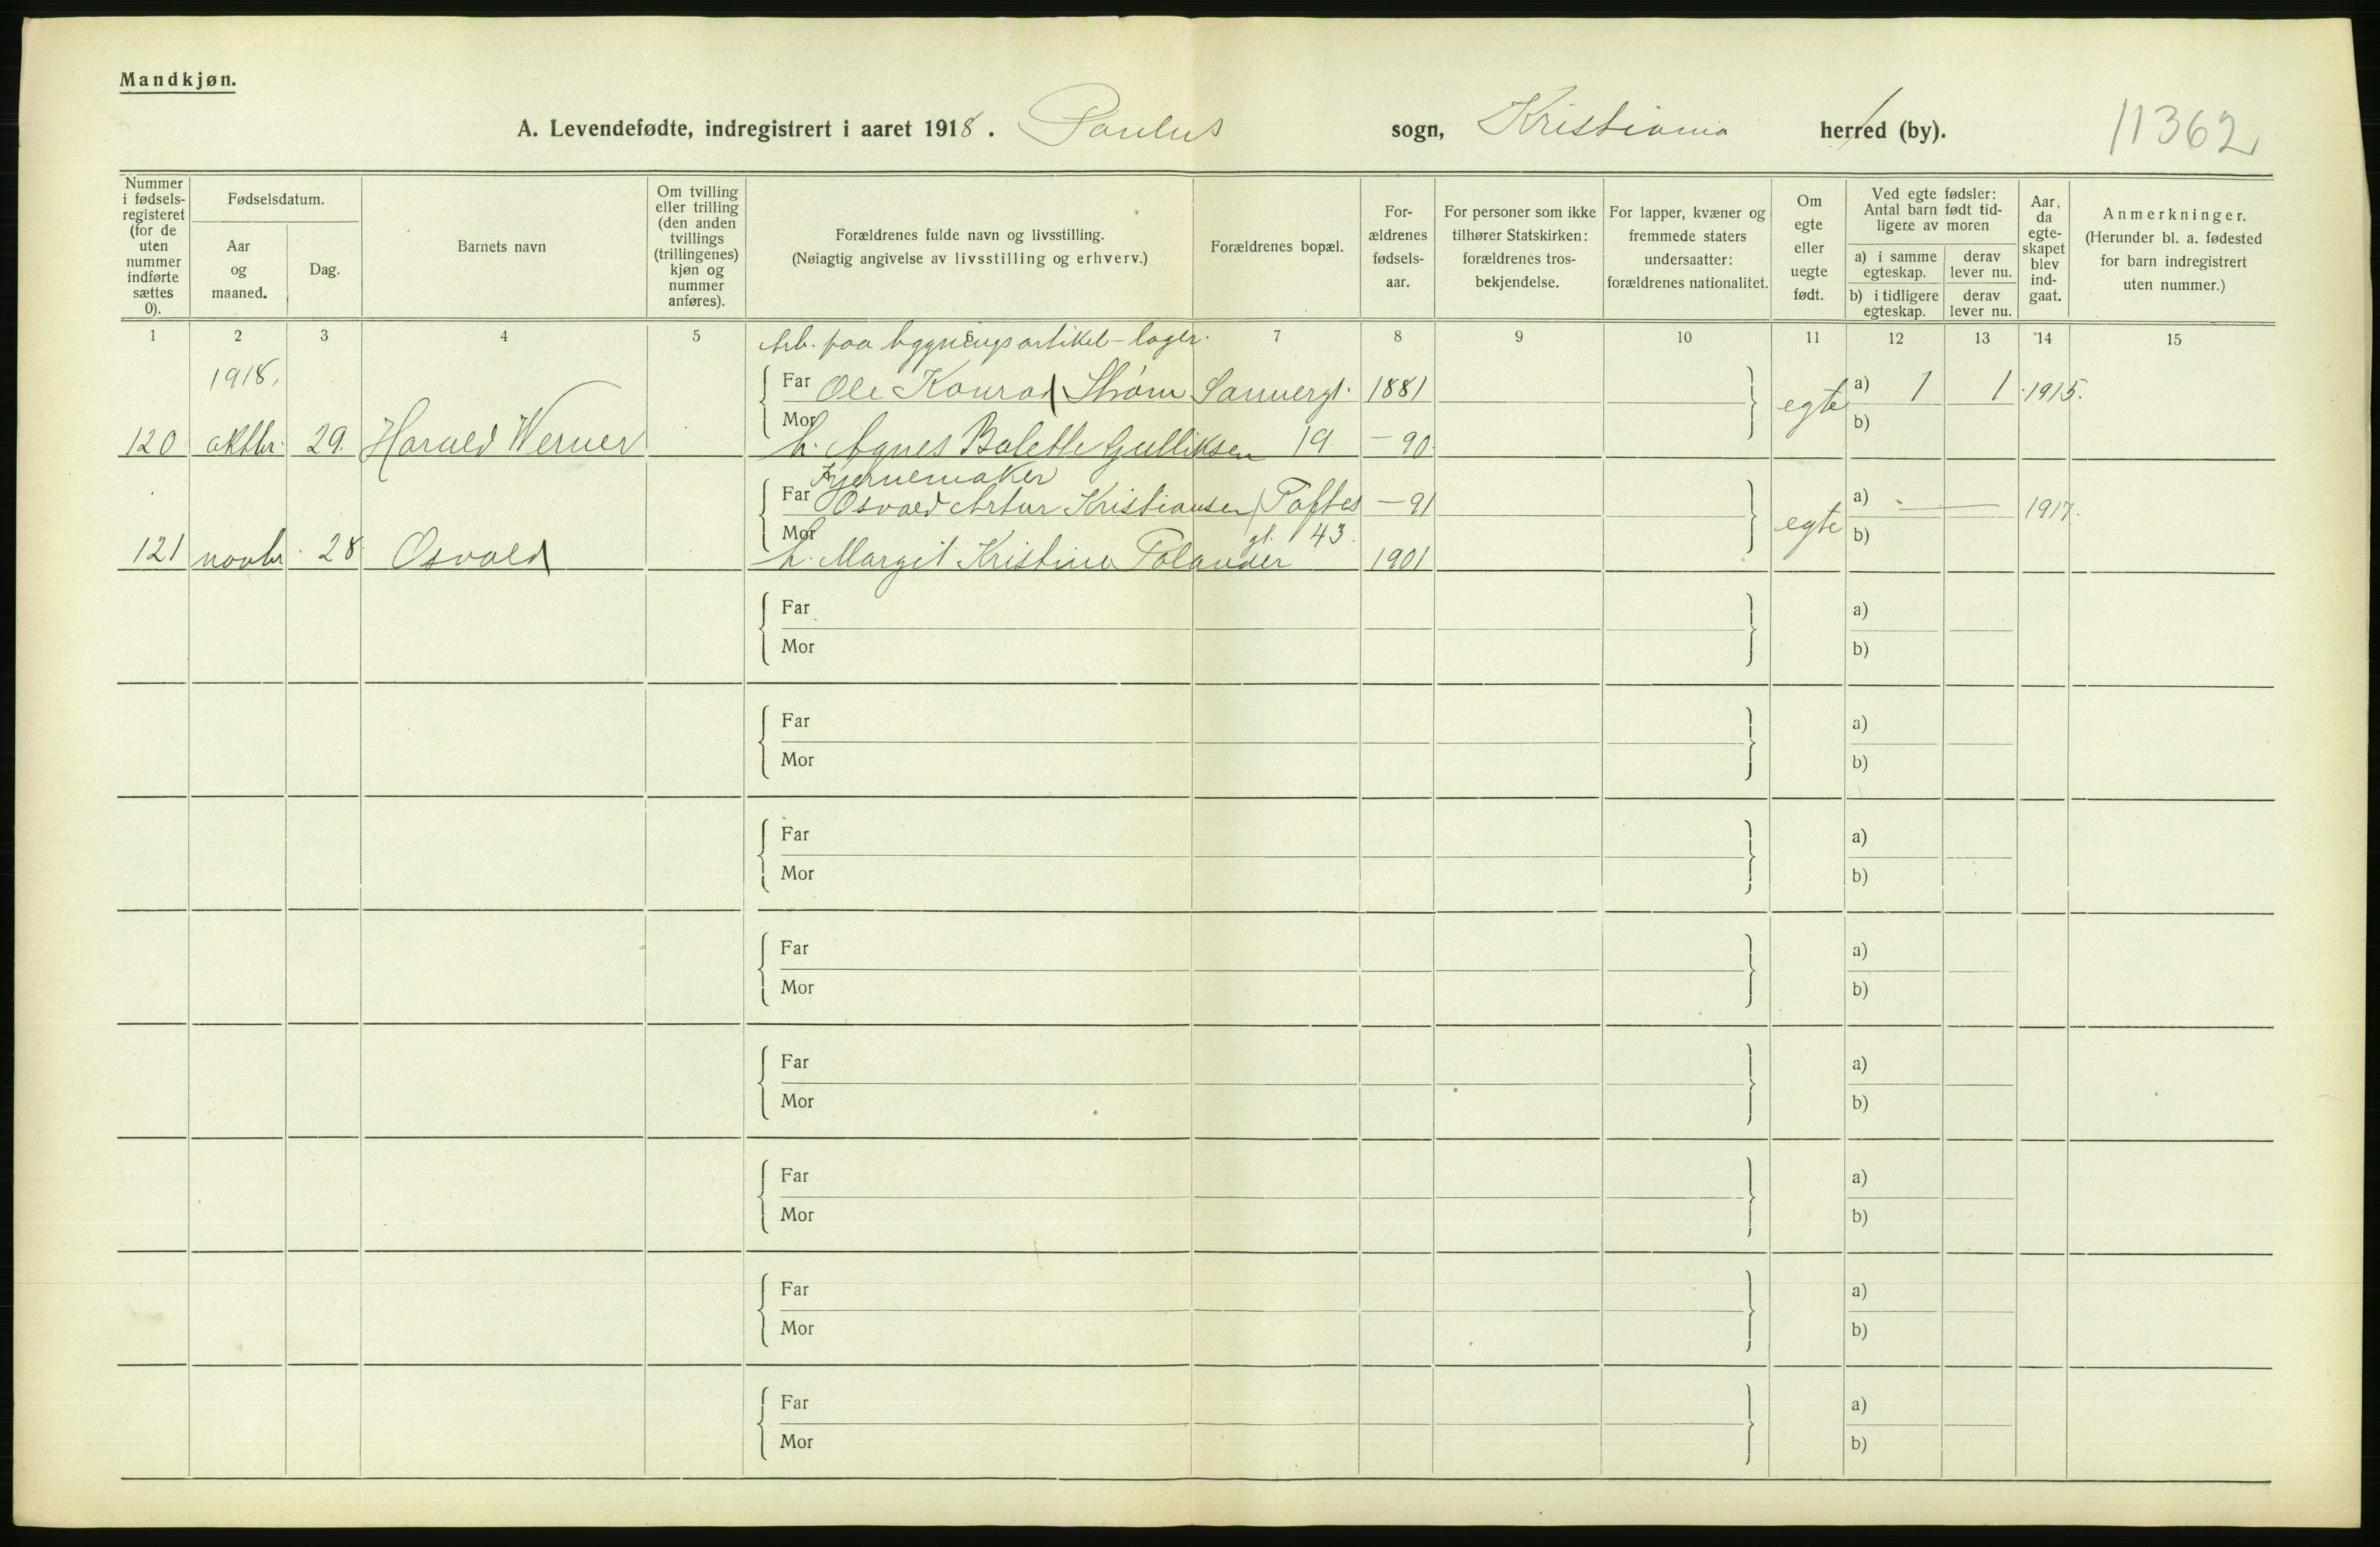 Mandkjøn.
A. Levendefødte, indregistrert i aaret 1918. Paulus sogn, Kristiania herred (by). 11362
Nummer i fødselsregisteret (for de uten nummer indførte sættes 0).
Fødselsdatum.
Aar og maaned.
Dag.
Barnets navn
Om tvilling eller trilling (den anden tvillings (trillingenes) kjøn og nummer anføres).
Forældrenes fulde navn og livsstilling.
(Nøiagtig angivelse av livsstilling og erhverv.)
Forældrenes bopæl.
Forældrenes fødselsaar.
For personer som ikke tilhører Statskirken: forældrenes trosbekjendelse.
For lapper, kvæner og fremmede staters undersaatter: forældrenes nationalitet.
Om egte eller uegte født.
Ved egte fødsler: Antal barn født tidligere av moren
a) i samme egteskap.
derav lever nu.
b) i tidligere egteskap.
derav lever nu.
Aar, da egteskapet blev indgaat.
Anmerkninger.
(Herunder bl. a. fødested for barn indregistrert uten nummer.)
1 2 3 4 5 6 7 8 9 10 11 12 13 14 15
Arb. paa bygningsartikel-lager.
1918.
Far Ole Konrad Strøm Sannergt. 1881 egte a) 1 1 1915.
120 oktbr. 29. Harald Werner Mor h. Agnes Balette Gulliksen 19. -90. b)
Far Osvald Artur Kristiansen Toftes -91 egte a) - 1917.
gt. 43.
121 novbr. 28. Osvald Mor h. Margit Kristine Polander 1901 b)
Far a)
Mor b)
Far a)
Mor b)
Far a)
Mor b)
Far a)
Mor b)
Far a)
Mor b)
Far a)
Mor b)
Far a)
Mor b)
Far a)
Mor b)